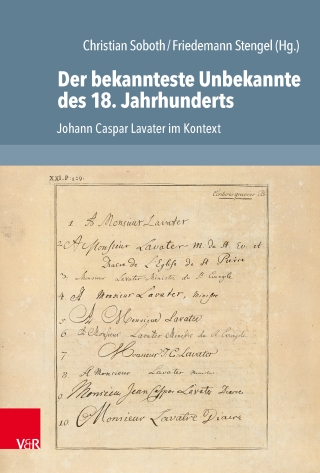 Christian Soboth/Friedemann Stengel (Hg.)
Der bekannteste Unbekannte
des 18. Jahrhunderts
Johann Caspar Lavater im Kontext
XXI. P. 129.
1 A Monsieur Lavater
2 A Monsieur Lavater m. du St. Ev. et
Diacre de L'Eglise de St Pierre
3 Lavater Ministre du St. Evangile
4 A Monsieur Lavater, Ministre
5 A Monsieur Lavater
6 A Monsieur Lavater Ministre du St. Evangile
7 Monsieur J. C. Lavater
8 A Monsieur Lavater
9 Monsieur Jean Caspar Lavater Diacre
10 Monsieur Lavater Diacre
V&R